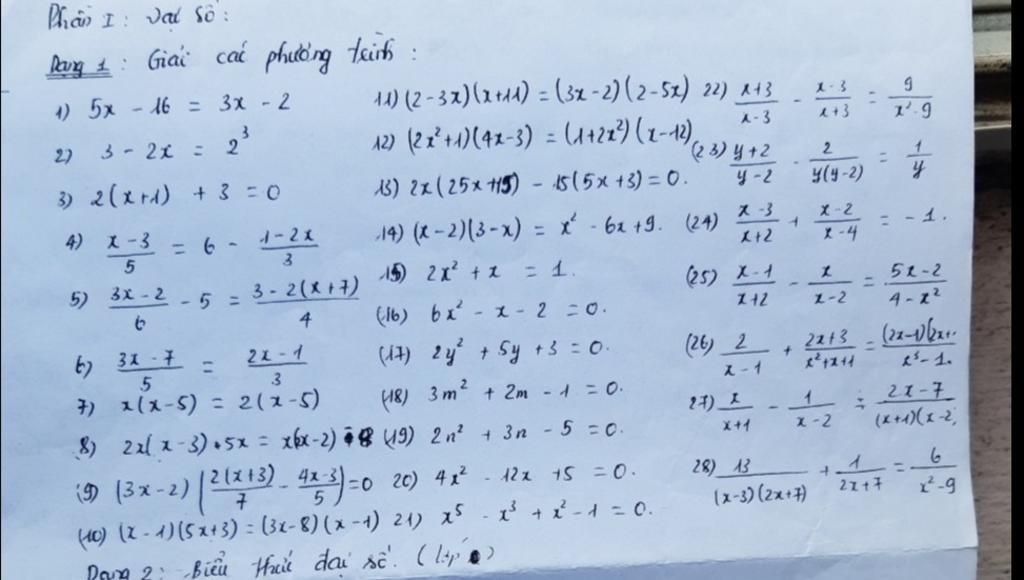 Phần I: Đại số:
Dạng 1: Giải các phương trình:
1) 5x - 16 = 3x - 2
2) 3 - 2x = 2^3
3) 2(x+1) + 3 = 0
4) (x-3)/5 = 6 - (1-2x)/3
5) (3x-2)/6 - 5 = (3-2(x+7))/4
6) (3x-7)/5 = (2x-1)/3
7) x(x-5) = 2(x-5)
8) 2x(x-3)+5x = x(x-2)
(9) (3x-2)(2(x+3)/7 - (4x-3)/5) = 0
(10) (x-1)(5x+3) = (3x-8)(x-1)
11) (2-3x)(x+11) = (3x-2)(2-5x)
12) (2x²+1)(4x-3) = (1+2x²)(x-12)
13) 2x(25x+15) - 15(5x+3) = 0.
14) (x-2)(3-x) = x² - 6x + 9.
15) 2x² + x = 1.
(16) 6x² - x - 2 = 0.
(17) 2y² + 5y + 3 = 0.
(18) 3m² + 2m - 1 = 0.
(19) 2n² + 3n - 5 = 0.
20) 4x² - 12x + 5 = 0.
21) x⁵ - x³ + x² - 1 = 0.
22) (x+3)/(x-3) - (x-3)/(x+3) = 9/(x²-9)
(23) (y+2)/(y-2) - 2/(y(y-2)) = 1/y
(24) (x-3)/(x+2) + (x-2)/(x-4) = -1.
(25) (x-1)/(x+2) - x/(x-2) = (5x-2)/(4-x²)
(26) 2/(x-1) + (2x+3)/(x²+x+1) = (2x-1)(2x+/(x³-1.
27) x/(x+1) - 1/(x-2) = (2x-7)/(x+1)(x-2
28) 13/((x-3)(2x+7)) + 1/(2x+7) = 6/(x²-9)
Dạng 2: Biểu thức đại số. (lớp